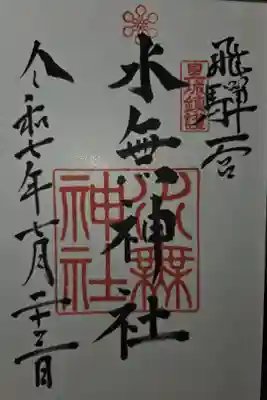 飛騨一宮
皇城鎮護
水無神社
水無神社
令和七年七月二十三日